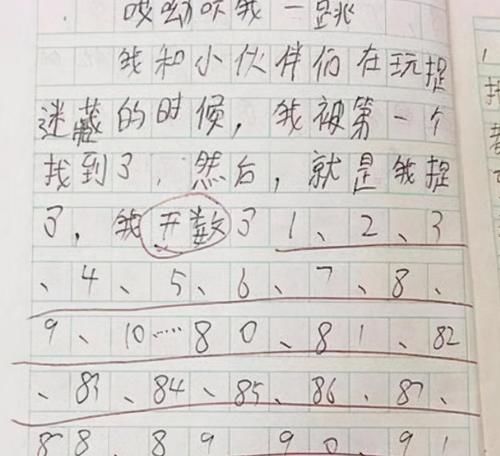 哎呦吓我一跳
我和小伙伴们在玩捉
迷藏的时候，我被第一个
找到了，然后，就是我捉
了，我开数了1、2、3
、4、5、6、7、8、
9、10……80、81、82
、83、84、85、86、87、
88、89、90、91